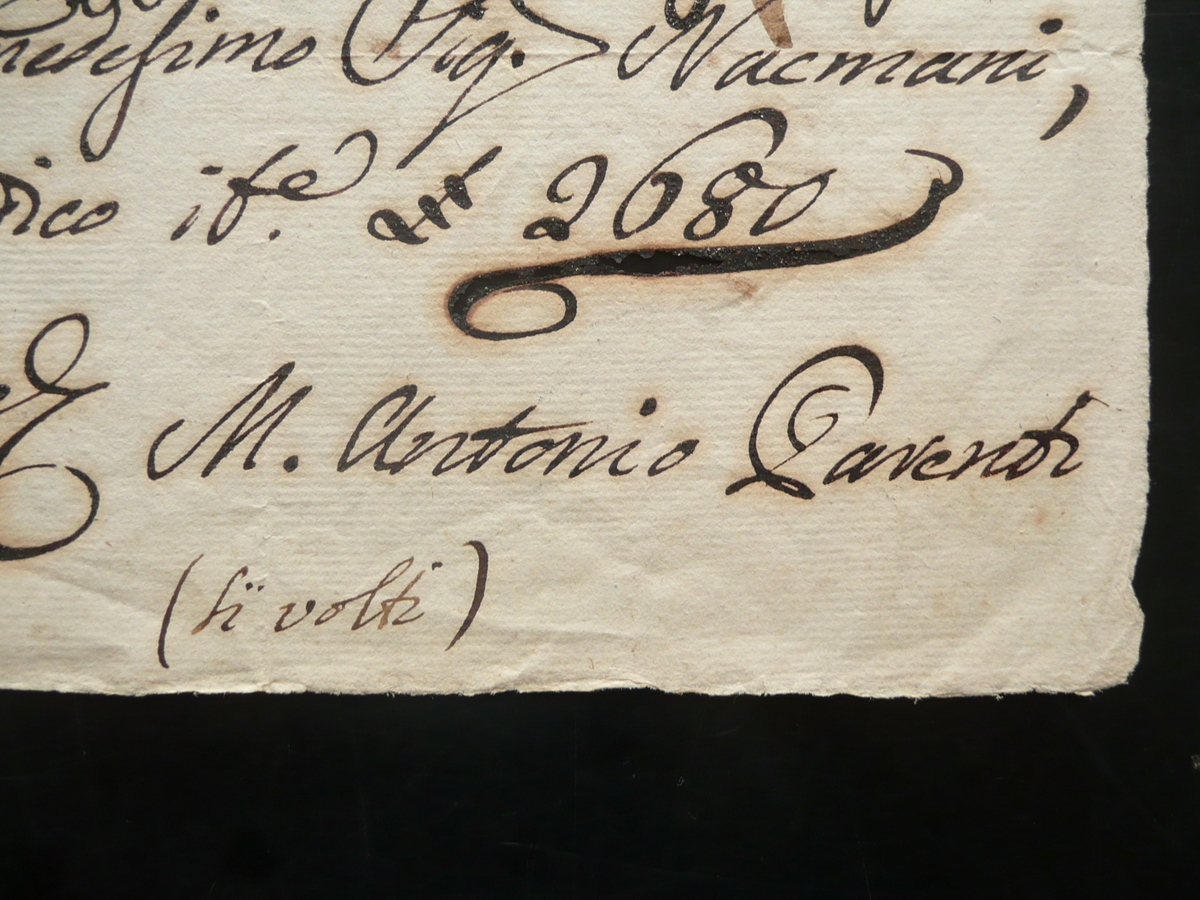 medesimo Sig. Nacmani,
dico 2680
M. Antonio Parenti
(si volti)